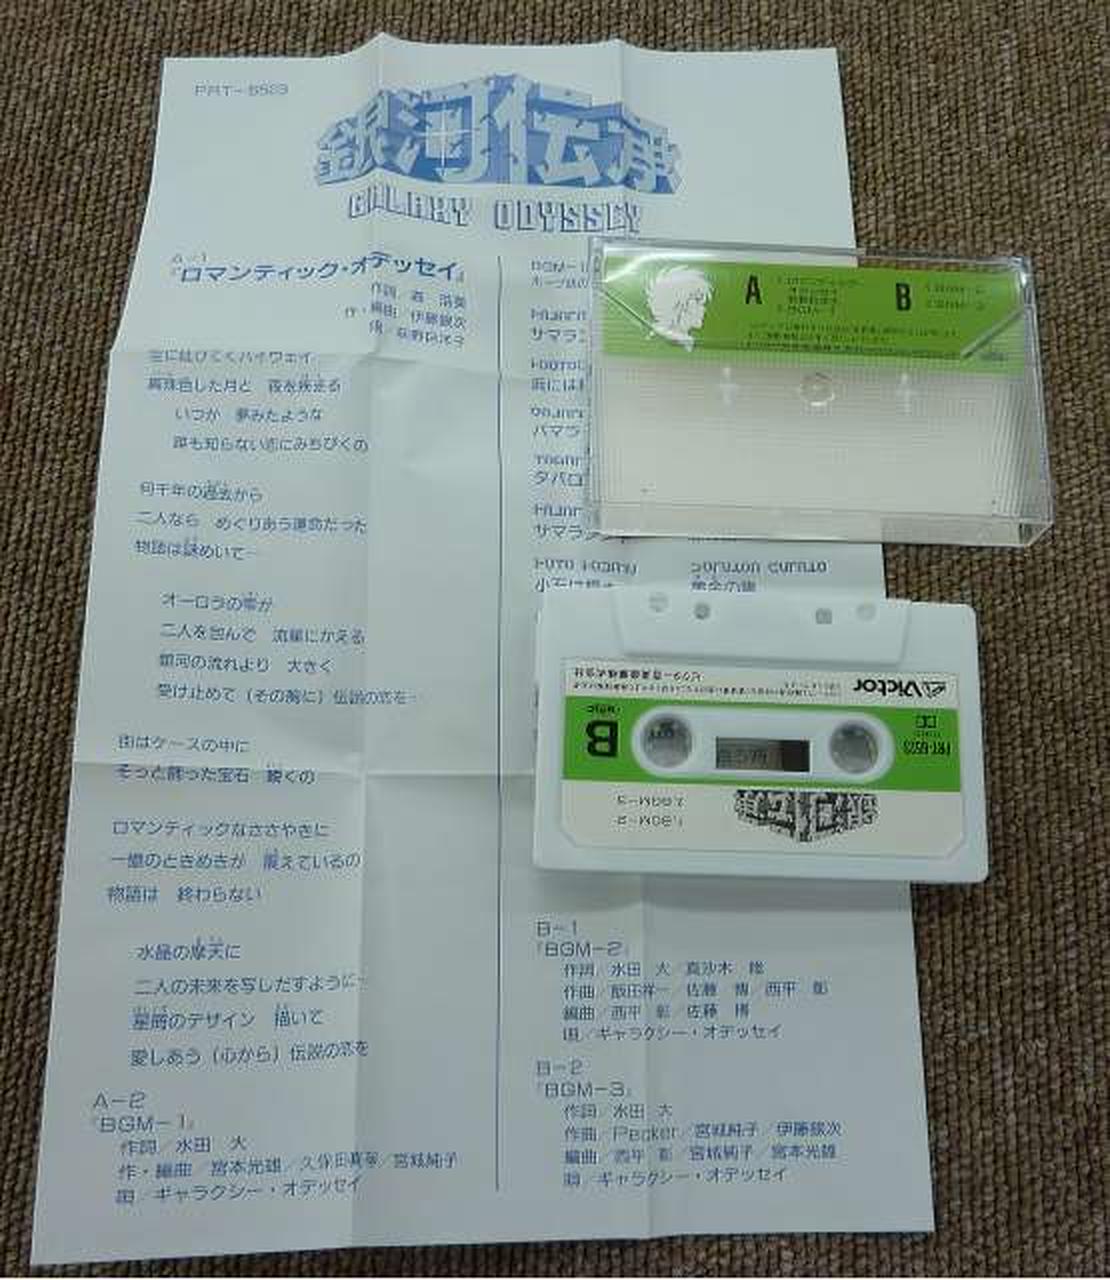 PRT-6523
銀河伝承
GALAXY ODYSSEY
A-1
『ロマンティック・オデッセイ』
作詞 森 浩美
作・編曲 伊藤銀次
唄 荻野目洋子
空に結びてくハイウェイ
真珠色した月と 夜を疾走る
いつか 夢みたような
誰も知らない恋にみちびくの
何千年の過去から
二人なら めぐりあう運命だった
物語は謎めいて…
オーロラの雫が
二人を包んで 流星にかえる
銀河の流れより 大きく
受け止めて(その胸に)伝説の恋を…
街はケースの中に
そっと飾った宝石 瞬くの
ロマンティックなささやきに
一億のときめきが 震えているの
物語は 終わらない
水晶の摩天に
二人の未来を写しだすように…
星屑のデザイン 描いて
愛しあう(心から)伝説の恋を
A-2
『BGM-1』
作詞/水田 大
作・編曲/宮本光雄/久保田真琴/宮城純子
唄/ギャラクシー・オデッセイ
BGM-1
サマラ
浜には
パマラ
タバロ
サマランダ
小石は
黄金の
B-1
『BGM-2』
作詞/水田 大/真沙木 唯
作曲/飯田祥一/佐藤 博/西平 彰
編曲/西平 彰/佐藤 博
唄/ギャラクシー・オデッセイ
B-2
『BGM-3』
作詞/水田 大
作曲/Pecker/宮城純子/伊藤銀次
編曲/西平 彰/宮城純子/宮本光雄
唄/ギャラクシー・オデッセイ
A
B
Victor
ビクター音楽産業株式会社
B
PRT-6523
1.BGM-2
2.BGM-3
銀河伝承